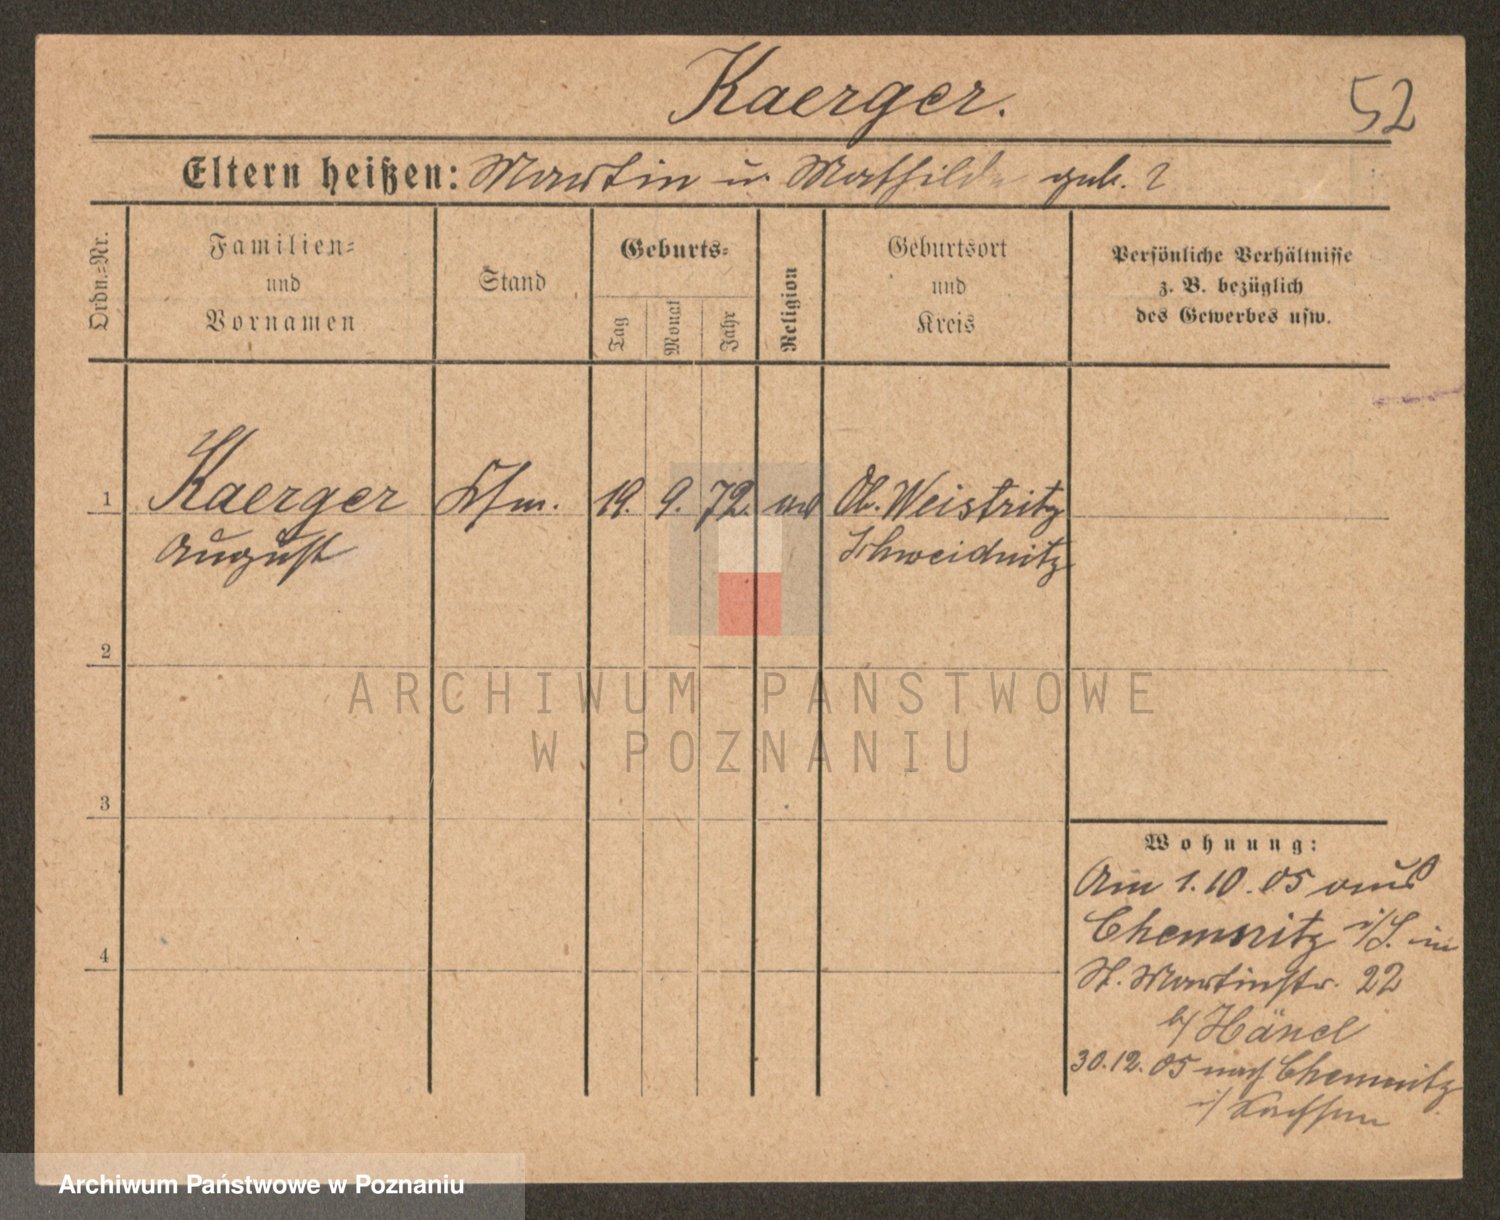 Kaerger.
52
Eltern heißen: Martin u. Mathilde geb. ?
Ordn.=Nr.
Familien=
und
Vornamen
Stand
Geburts=
Tag
Monat
Jahr
Religion
Geburtsort
und
Kreis
Persönliche Verhältnisse
z. B. bezüglich
des Gewerbes usw.
1 Kaerger Kfm. 19. 9. 72. Ob. Weistritz
August Schweidnitz
2
3
4
Wohnung:
Am 1.10.05 aus
Chemnitz i/S. in
St. Martinstr. 22
b/ Hänel
30.12.05 nach Chemnitz
i/ Sachsen
ARCHIWUM PAŃSTWOWE
W POZNANIU
Archiwum Państwowe w Poznaniu